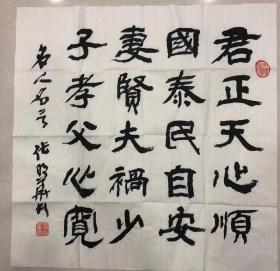 君正天心順
國泰民自安
妻賢夫禍少
子孝父心寬
名人名言